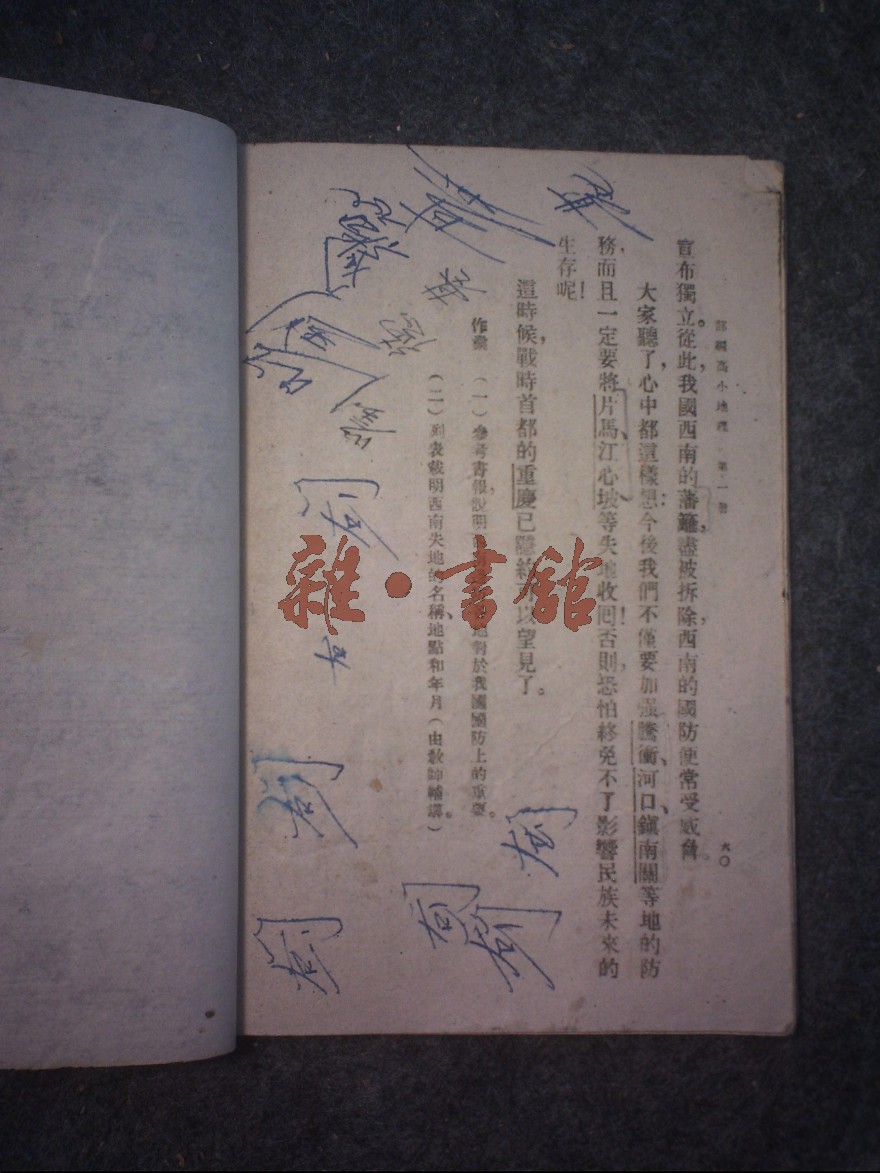 高小地理 第一
六〇
宣布獨立。從此，我國西南的藩籬，盡被拆除，西南的國防便常受威脅。
大家聽了，心中都這樣想：今後我們不僅要加強騰衝、河口、鎮南關等地的防
務，而且一定要將片馬、江心坡等失地收回！否則，恐怕終免不了影響民族未來的
生存呢！
這時候，戰時首都的重慶已隱約可以望見了。
作業 （一）參考書報，說明 地對於我國國防上的重要。
（二）列表載明西南失地的名稱、地點和年月（由教師補講）。
雜·書館